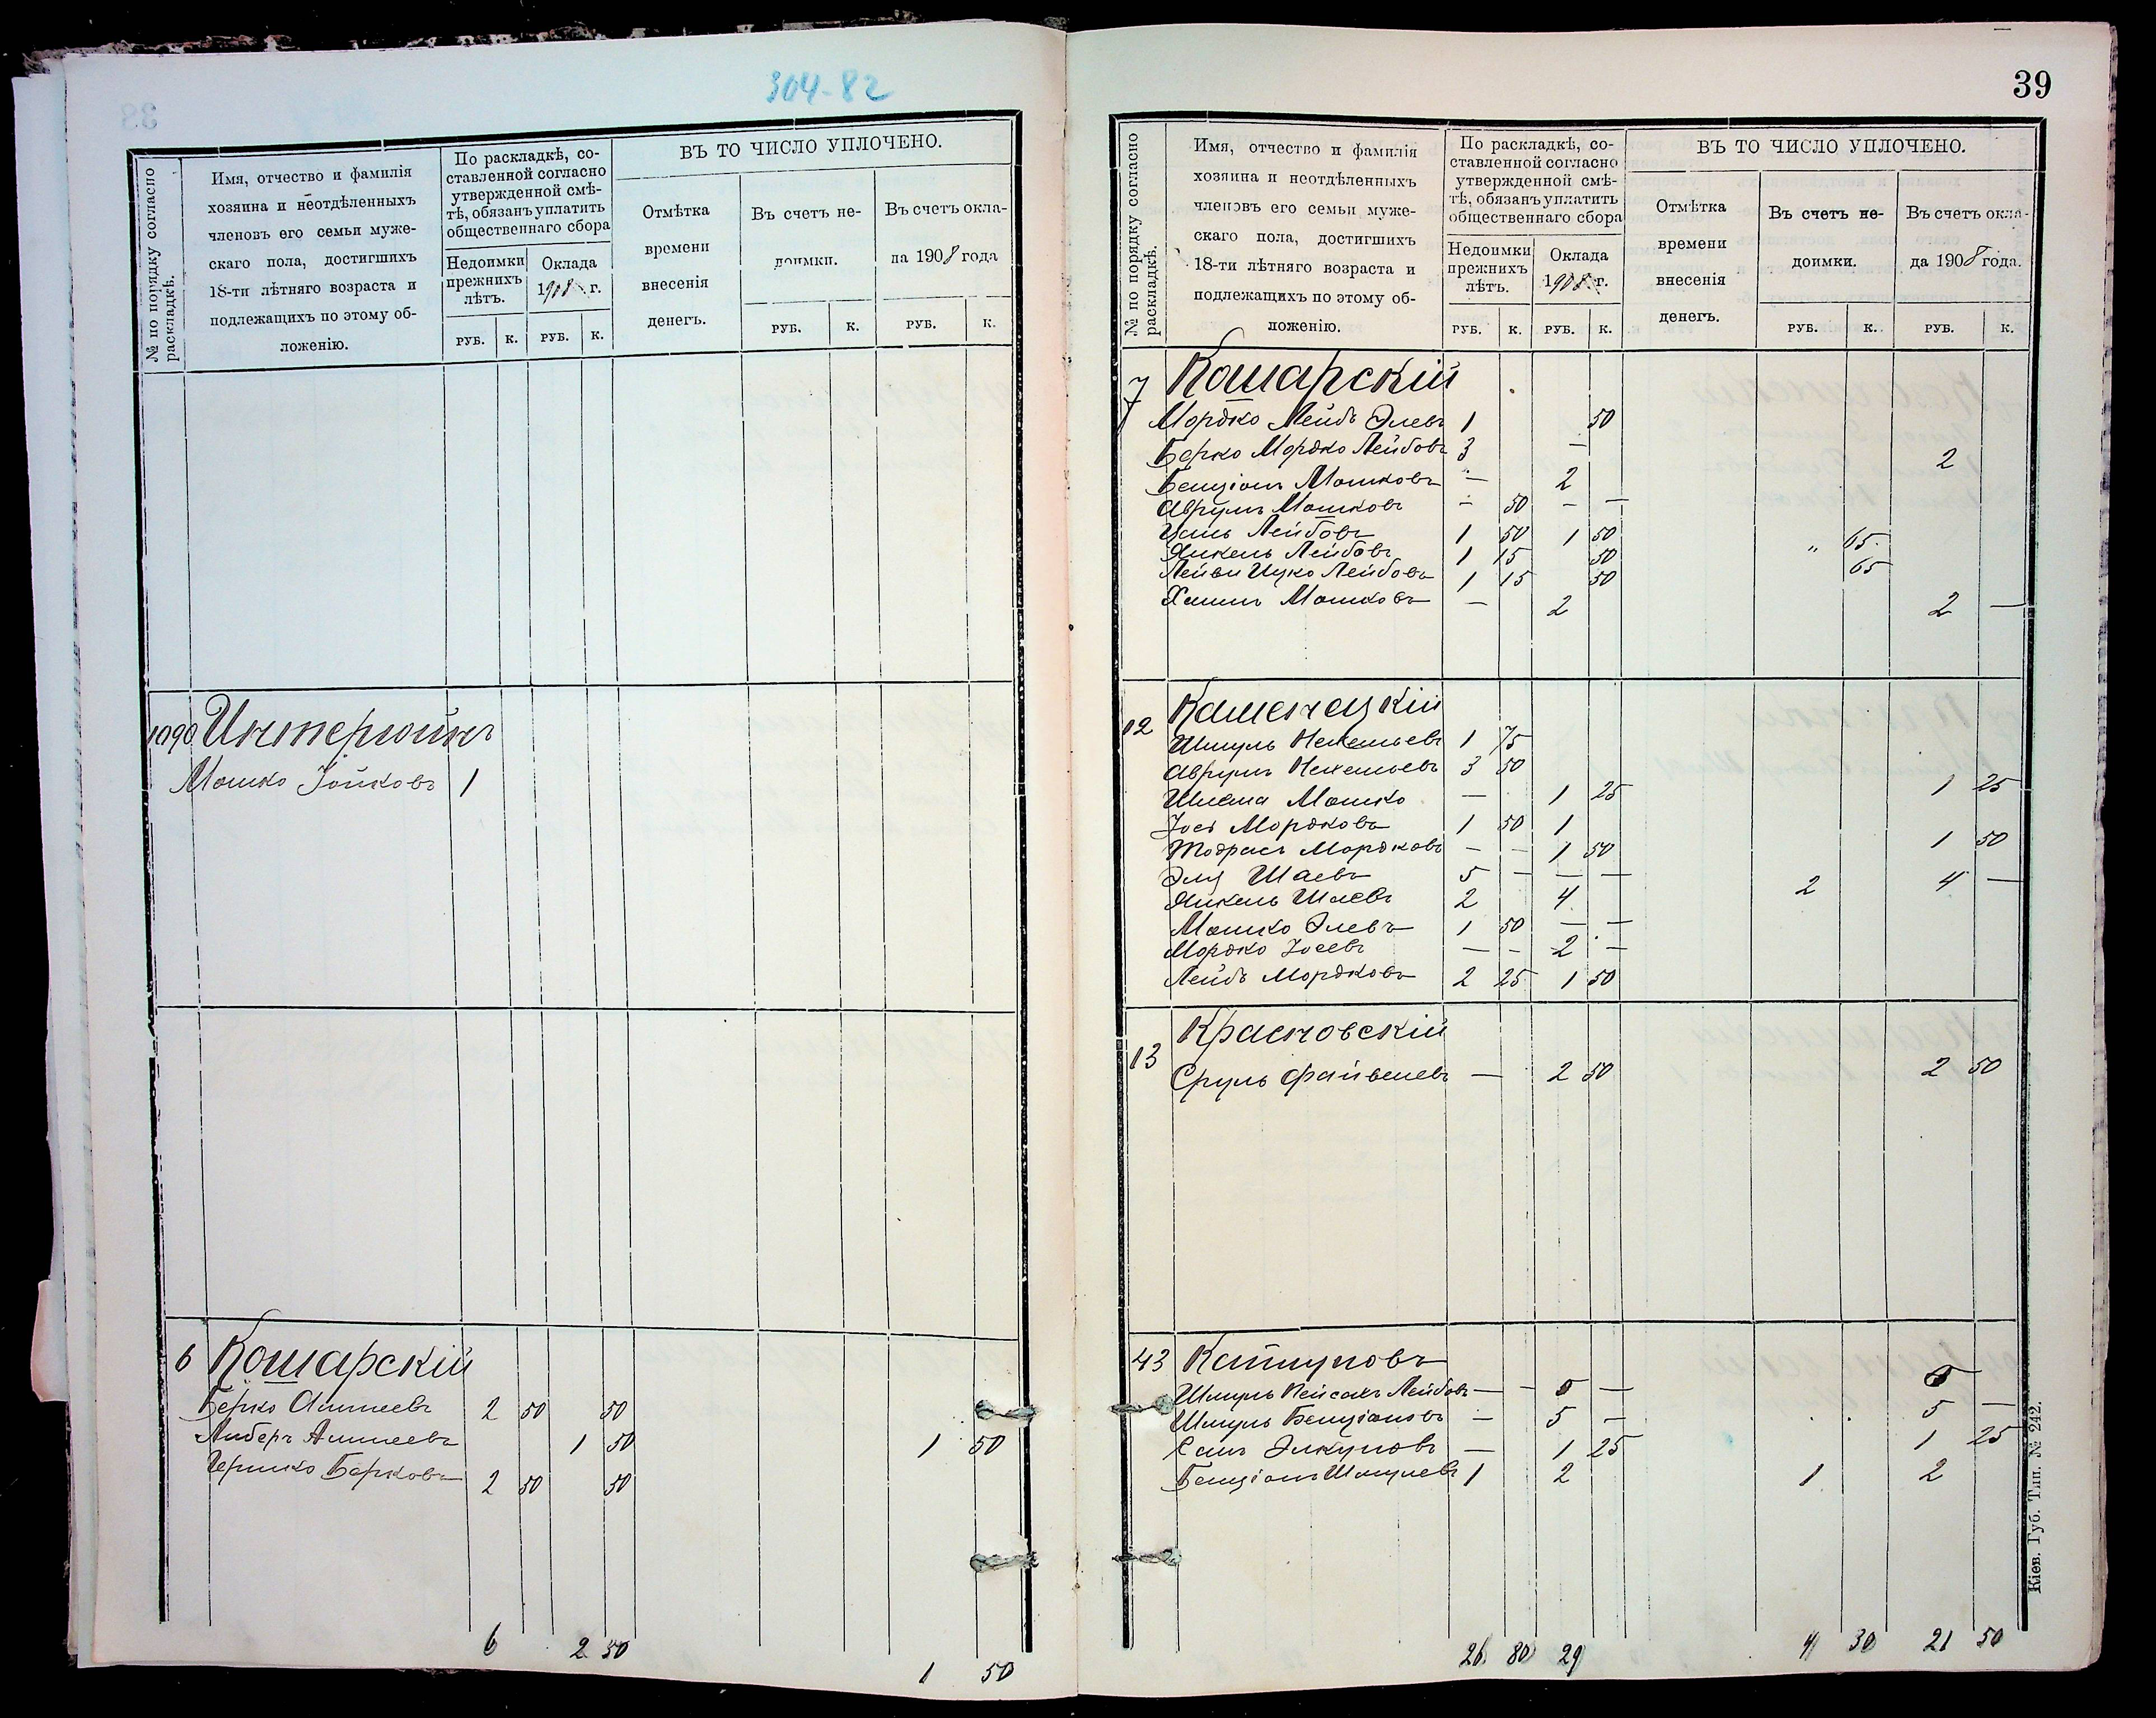 304-82
№ по порядку согласно раскладкѣ.
Имя, отчество и фамилія
хозяина и неотдѣленныхъ
членовъ его семьи муже-
скаго пола, достигшихъ
18-ти лѣтняго возраста и
подлежащихъ по этому об-
ложенію.
По раскладкѣ, со-
ставленной согласно
утвержденной смѣ-
тѣ, обязанъ уплатить
общественнаго сбора
Недоимки
прежнихъ
лѣтъ.
Оклада
1908 г.
РУБ. К. РУБ. К.
ВЪ ТО ЧИСЛО УПЛОЧЕНО.
Отмѣтка
времени
внесенія
денегъ.
Въ счетъ не-
доимки.
РУБ. К.
Въ счетъ окла-
да 1908 года
РУБ. К.
1090
Мошко Іойковъ 1
6 Кошарскій
Берко 2 50 50
Либеръ 1 50 1 50
Гершко Берковъ 2 50 50
6 2 50
1 50
39
№ по порядку согласно раскладкѣ.
Имя, отчество и фамилія
хозяина и неотдѣленныхъ
членовъ его семьи муже-
скаго пола, достигшихъ
18-ти лѣтняго возраста и
подлежащихъ по этому об-
ложенію.
По раскладкѣ, со-
ставленной согласно
утвержденной смѣ-
тѣ, обязанъ уплатить
общественнаго сбора
Недоимки
прежнихъ
лѣтъ.
Оклада
1908 г.
РУБ. К. РУБ. К.
ВЪ ТО ЧИСЛО УПЛОЧЕНО.
Отмѣтка
времени
внесенія
денегъ.
Въ счетъ не-
доимки.
РУБ. К.
Въ счетъ окла-
да 1908 года.
РУБ. К.
7 Кошарскій
Мордко Лейбъ Элевъ 1 50
Берко Мордко Лейбовъ 3 — 2
Бенціонъ Мошковъ — 2
Аврумъ Мошковъ — 50 — —
Лейбовъ 1 50 1 50
Янкель Лейбовъ 1 15 50 " 65
Лейви Ицко Лейбовъ 1 15 50 65
Хаимъ Мошковъ — 2 2 —
12 Каменецкій
Шмуль 1 75
Аврумъ 3 50
Шлема Мошко — 1 25 1 25
Іось Мордковъ 1 50 1
Тодрасъ Мордковъ — — 1 50 1 50
Эля Шаевъ 5 — — —
Янкель Шаевъ 2 4 2 4 —
Мошко Элевъ 1 50 — —
Мордко Іосевъ — — 2 —
Лейбъ Мордковъ 2 25 1 50
13 Красновскій
Сруль Файвелевъ — 2 50 2 50
43
Шмуль Пейсахъ Лейбовъ — — 5 — 5
Шмуль Бенціоновъ — 5 — 5 —
— 1 25 1 25
Бенціонъ Шмулевъ 1 2 1 2
26 80 29 4 30 21 50
Кіев. Губ. Тип. № 242.